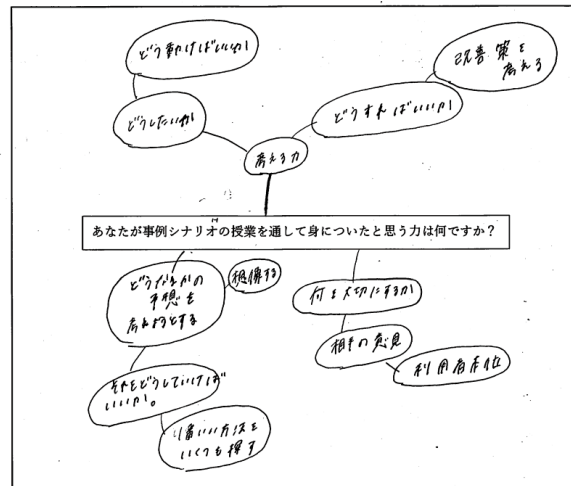 どう動けばいいか
改善策を
考える
どうしたいか
どうすればいいか
考える力
あなたが事例シナリオの授業を通して身についたと思う力は何ですか？
どうなるかの
予想を
考えようとする
想像する
何を大切にするか
相手の意見
利用者本位
それをどうしていけば
いいか。
1番いい方法を
いくつも探す